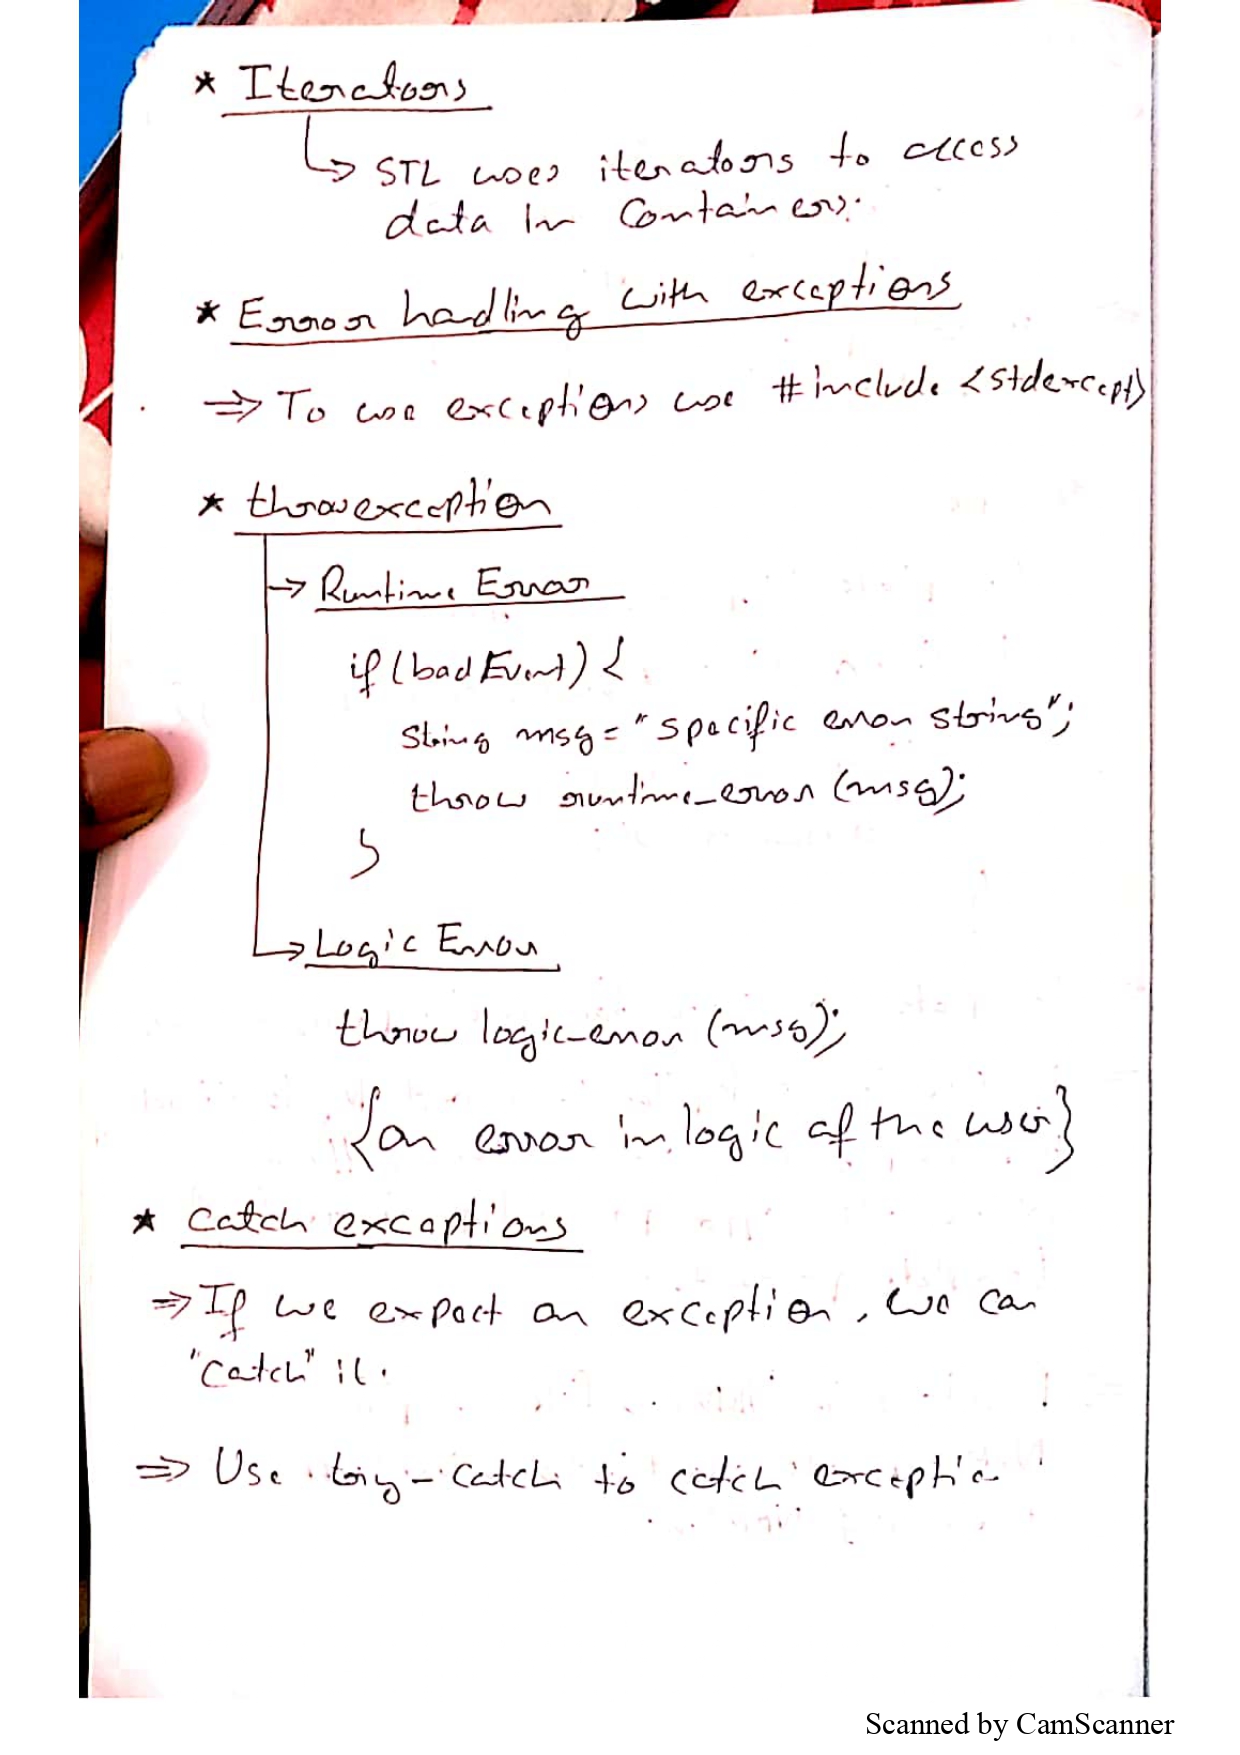 * Iterators
↳ STL uses iterators to access
data in Containers.
* Error hadling with exceptions
⇒ To use exceptions use #include <stdexcept>
* throw exception
→ Runtime Error
if (badEvent) {
string msg = "specific error string";
throw runtime_error (msg);
}
→ Logic Error
throw logic_error (msg);
{an error in logic of the user}
* Catch exceptions
⇒ If we expect an exception, we can
"catch" it.
⇒ Use try-catch to catch exceptio
Scanned by CamScanner